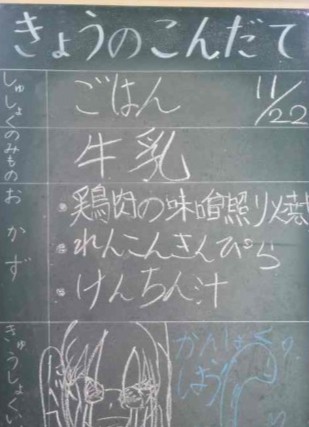 きょうのこんだて
11/22
しゅしょく
ごはん
のみもの
牛乳
おかず
鶏肉の味噌照り焼
れんこんきんぴら
けんちん汁
きゅうしょくい